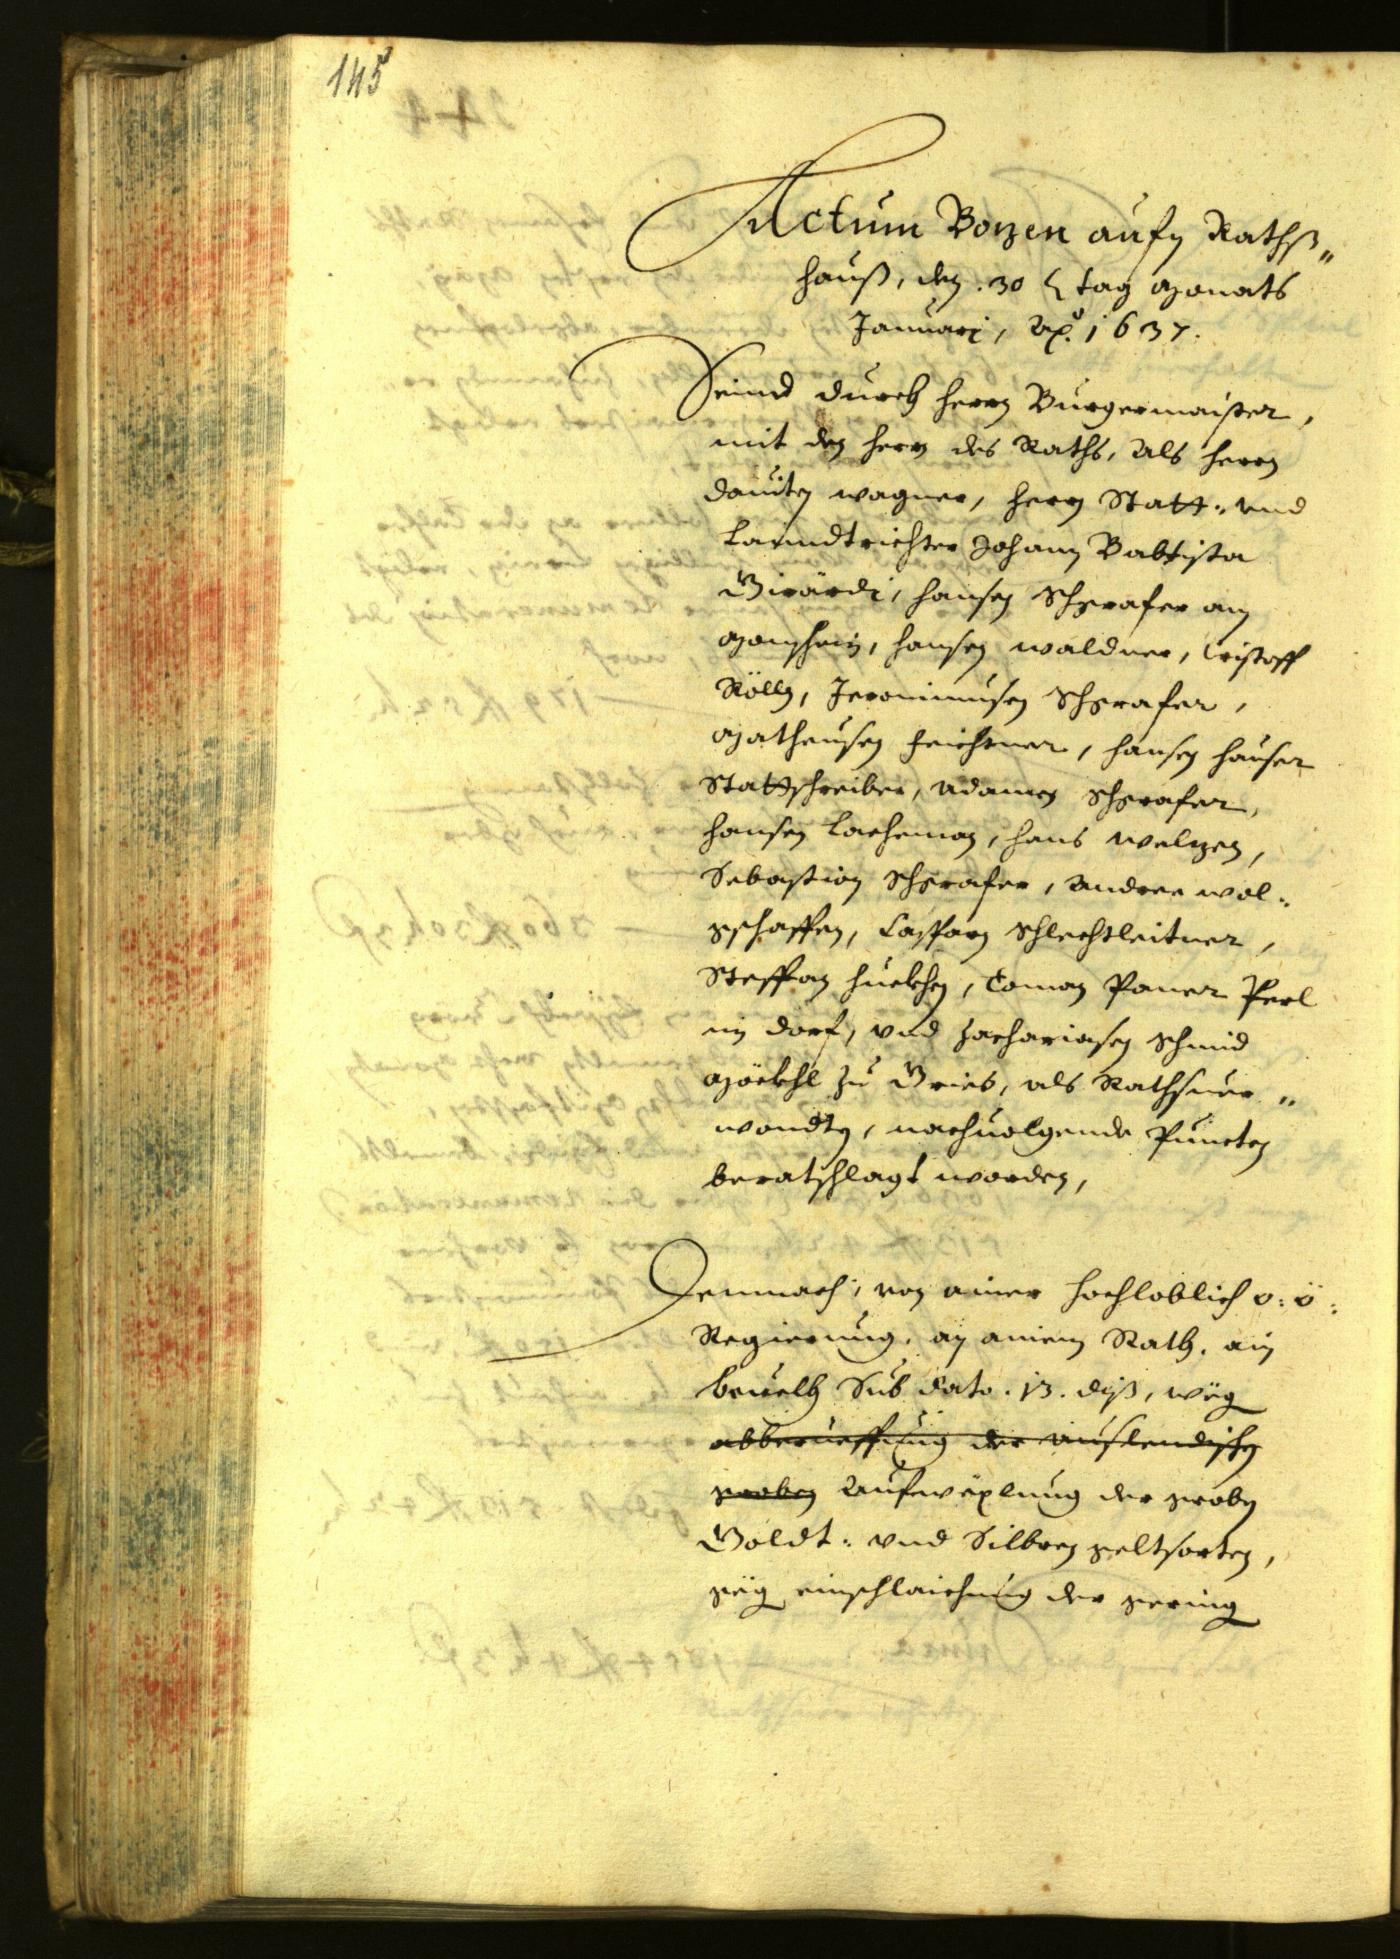 145
Actum Bozen aufn Rathß„
hauß, den .30 tag Monats
Januarj, Ao. 1637.
Seind durch herrn Burgermaister,
mit den herrn des Raths, Als herrn
Dauiten wagner, herrn Statt: vnd
Lanndtrichter Johann Babtista
Girärdi, Hansen Schgrafer am
Hansen waldner, Cristoff
Rölln, Jeronimusen Schgrafer,
Matheusen Feichtner, Hansen Hauser
Stattschreiber, Adamen Schgrafer,
Hansen Lacheman, Hans Welzen,
Sebastian Schgrafer, Andree wol:
gschaffen, Casparn Schlechtleitner,
Steffan Huebhen, Toman Pauer Perl
im dorf, vnd Zachariasen Schmid
Möckhl zu Gries, als Rathsuer„
wondten, nachuolgende Puncten
beratschlagt worden,
Demnach, von ainer hochloblich o: ö:
Regierung, an ainem Rath, ain
beuelh Sub dato .13. diß, weg
abberueffung der auslendischen
groben Aufwexlung der groben
Goldt: vnd Silbren geltsorten,
geg einschlaichung der gering